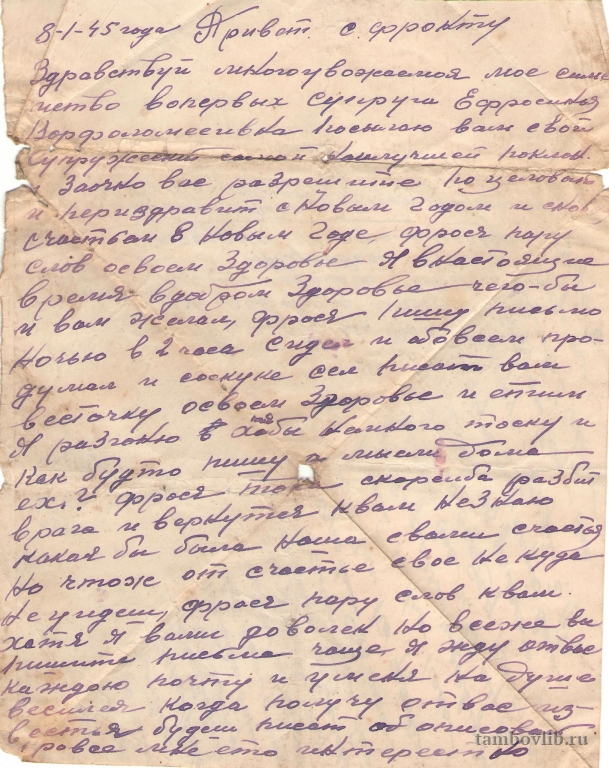 8-1-45 года Привет с фронту
Здравствуй многоуважаемоя мое семи
нство вопервых супруга Ефросинья
Ворфоломеевивна посылаю вам свой
супружеский самой наилучшей поклон
Заочно вас разрешите поцеловат
и периздравит с новым годом и
счастьем в новым годе, фрося пару
слов освоем здоровье я внастоящие
время вдобром здоровье чего-бы
и вам желал, фрося пишу письмо
ночью в 2 часа сидел и обовсем про-
думал и соскуке сел писат вам
весточку освоем здоровье и етим
я разгоню хотя бы немного тоску и
как будто пишу а мысли дома
ех. ? фрося скорейба разбит
врага и вернутся квам незнаю
какая бы была наша свами счастья
но чтож от счастье свое не куда
не уидеш, фрося пару слов квам
хатя я вами доволен но всеже вы
пишите письма чаще, я жду отвас
каждою почту и уменя на душе
весилея когда получу отвас из-
вестья будеш писат об описовай
провсе мне ето интересно
tambovlib.ru